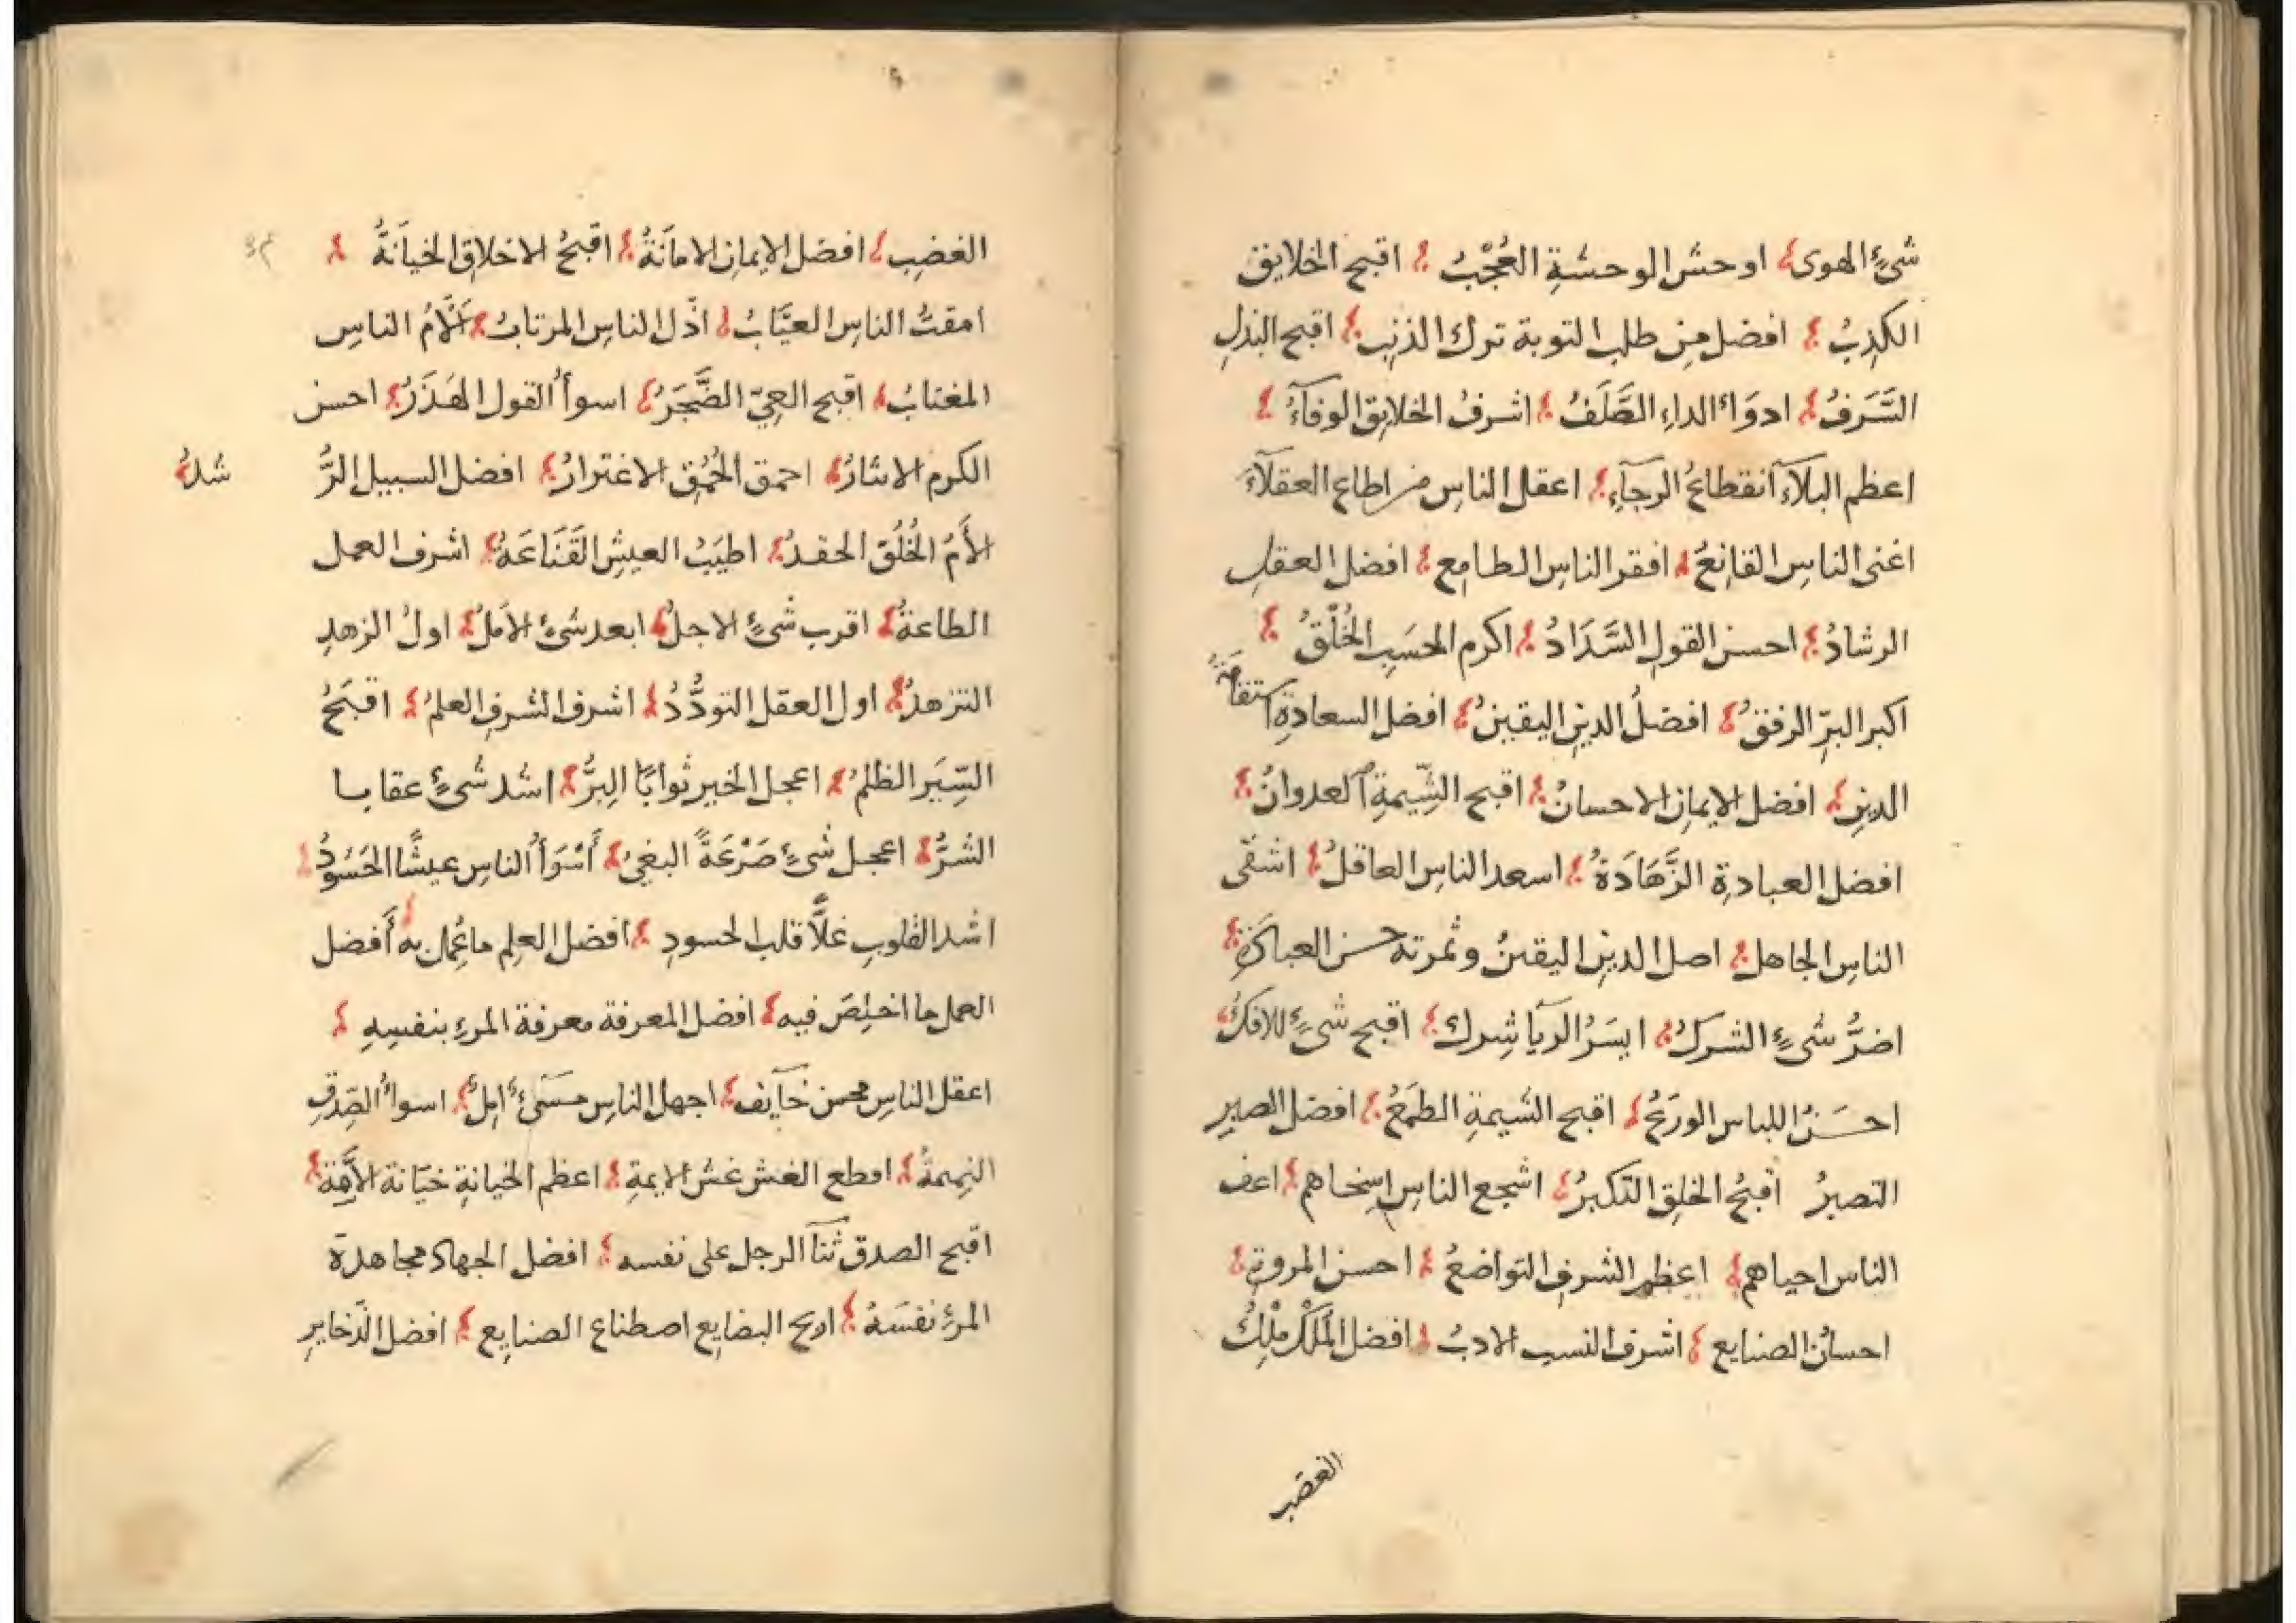 شیءٍ الهوى اوحش الوحشةِ العُجْبُ اقبح الخلايق
الكذِبُ افضل من طلب التوبة ترك الذنبِ اقبح البذلِ
السَّرَفُ ادوَاءُ الداءِ الصَّلَفُ اشرفُ الخلايق الوفآءُ
اعظم البلآءِ انقطاعُ الرجآءِ اعقل الناسِ من اطاع العقلآءَ
اغنى الناسِ القانِعُ افقر الناسِ الطامِع افضل العقلِ
الرشادُ احسن القولِ السَّدَادُ اكرم الحسَبِ الخُلُقُ
اكبر البرّ الرفقُ افضلُ الدينِ اليقينُ افضل السعادةِ استقامَةُ
الدينِ افضل الايمانِ الاحسانُ اقبح الشِّيمةِ العدوانُ
افضل العبادةِ الزَّهَادَةُ اسعد الناسِ العاقلُ اشقى
الناسِ الجاهل اصل الدينِ اليقينُ وثمرته حسن العبادَةِ
اضرُّ شیءٍ الشركُ ايسَرُ الريآ شِرك اقبح شیءٍ الافكُ
احسَنُ اللباسِ الورَعُ اقبح الشيمةِ الطمَعُ افضل الصبرِ
التصبرُ اقبحُ الخلقِ التكبرُ اشجع الناسِ اسخاهم اعف
الناس احياهم اعظم الشرفِ التواضعُ احسن المروةِ
احسانُ الصنايع اشرف النسب الادبُ افضل المَلك مِلْكُ
الغضب
الغضِبِ افضل الايمانِ الامانَةُ اقبحُ الاخلاقِ الخيَانَةُ
امقتُ الناسِ العيَّابُ اذّل الناسِ المرتابُ أَلْأمُ الناسِ
المغتابُ اقبح العِيّ الضَّجَرُ اسوأُ القول الهَذَرُ احسن
الكرم الايثارُ احمق الحُمُقِ الاغترارُ افضل السبيل الرُّ
شدُ
الأمُ الخُلُقِ الحقدُ اطيَبُ العيشِ القَنَاعَةُ اشرف العمل
الطاعةُ اقرب شیءٍ الاجلُ ابعد شیءٍ الأملُ اولُ الزهدِ
التزهدُ اول العقل التودُّدُ اشرف الشرفِ العلمُ اقبَحُ
السِّيَر الظلمُ اعجل الخير ثوابًا البِرُّ اشد شیءٍ عقابا
الشرُّ اعجل شیءٍ صَرْعَةً البغیُ أَسْوَأُ الناسِ عيشًا الحَسُودُ
اشد القلوبِ غلاًّ قلب الحسودِ افضل العلِم ما عُمل به أَفضل
العمل ما اخلِصَ فيه افضل المعرفة معرفة المرءِ بنفسِهِ
اعقل الناسِ محسن خآيف اجهل الناسِ مسَیءٌ املٌ اسواءُ الصِّدقِ
النميمةُ افظع الغش غشُ الايمةِ اعظم الخيانةِ خيَانة الأمَّة
اقبح الصدق ثنآ الرجل على نفسه افضل الجهاد مجاهدة
المرءِ نفسَهُ اربح البضايع اصطناع الصنايع افضل الذّخايرِ